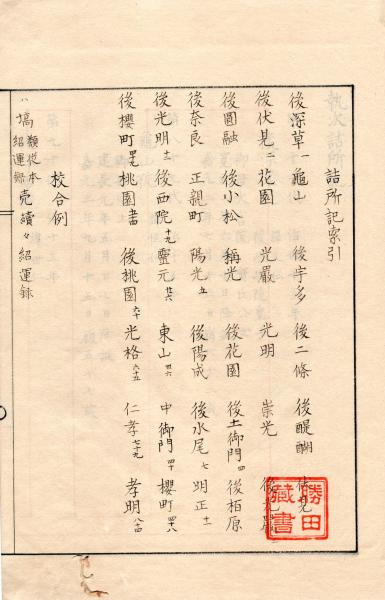 詰所記索引
後深草 一 龜山 後宇多 後二條 後醍醐 伏見
後伏見 花園 光嚴 光明 崇光 後光嚴
後圓融 後小松 稱光 後花園 後土御門 四 後柏原
後奈良 正親町 陽光 五 後陽成 後水尾 七 明正 十一
後光明 士 後西院 十九 靈元 廿六 東山 四六 中御門 四十 櫻町 四十八
後櫻町 桃園 後桃園 六十 光格 六十五 仁孝 七十九 孝明 八十四
校合例
ハ 塙 類從本紹運録 売 續々紹運録
勝田藏書